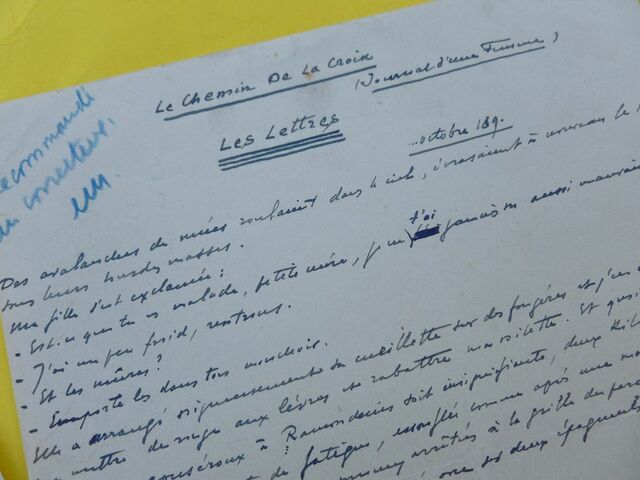 Le Chemin De La Croix
(Journal d'une Femme)
Les Lettres
recommandé
au correcteur.
... octobre 189.
Des avalanches de nuées roulaient dans le ciel, écrasaient à nouveau le
sous leurs lourdes masses.
Ma fille s'est exclamée :
- Est-ce que tu es malade, petite mère, je ne t'ai jamais vu aussi mauvaise
- J'ai un peu froid, rentrons.
- Et les mûres ?
- Emporte les dans ton mouchoir.
Elle a arrangé soigneusement sa cueillette sur des fougères et j'en ai
mettre du rouge aux lèvres et rabattre ma voilette. Et quoi
à soit insignifiante, deux kil
de fatigue, essoufflée comme après une
arrêtés à la grille du parc